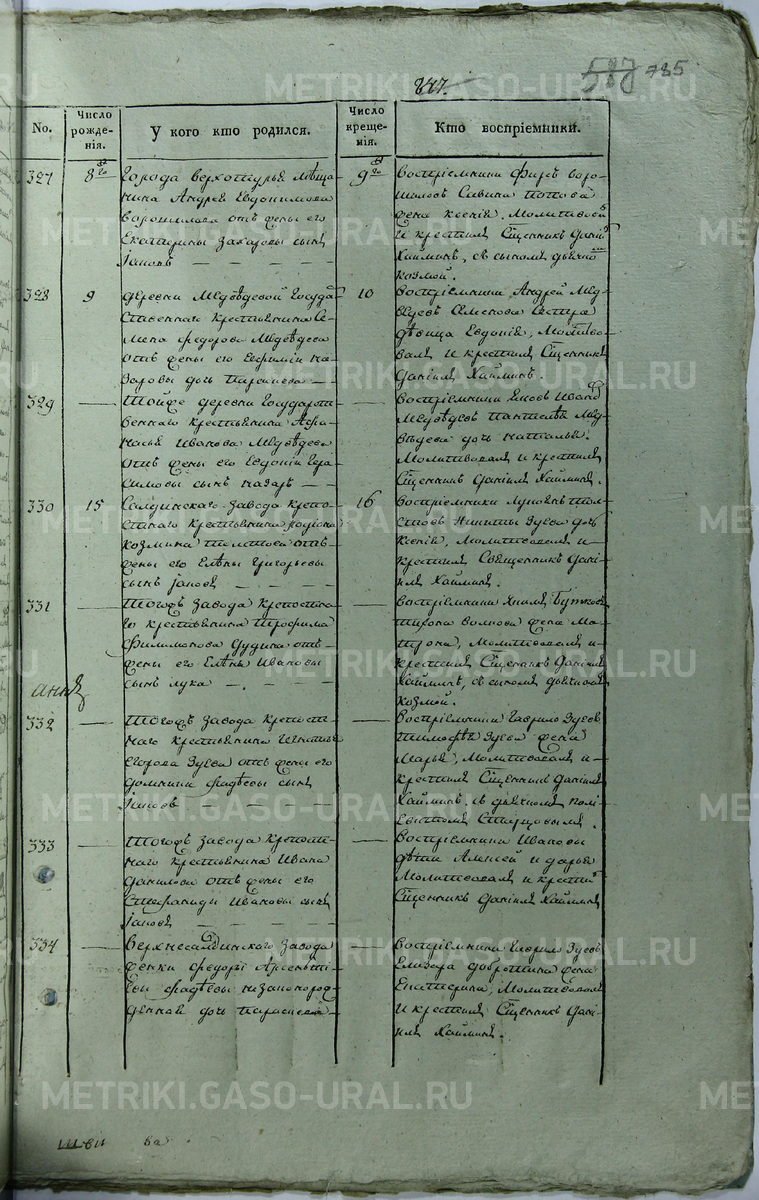 847.
587 785
No.
Число рожде-нія.
У кого кто родился.
Число креще-мія.
Кто воспріемники.
327
8го
Города Верхотурья Мѣща-
нина Андрея Евдокимова
Ворошилова отъ жены его
Екатерины Захаровы сынъ
Іаковъ
9го
Воспріемники Фирсъ Воро-
шиловъ Савина Попова
жена Ксенія. Молитвов
и крестилъ Сщенникъ Дані
Хайминъ, съ сыномъ дьячко
Козмой.
328
9
деревни Медвѣдевой Госуда
ственнаго Крестьянина Се-
мена Федорова Медвѣдева
отъ жены его Евфиміи На-
заровы дочь Параскева
10
Воспріемники Андрей Мед-
Семенова Сестра
дѣвица Евдокія, Молитво-
валъ и крестилъ Сщенникъ
Даніилъ Хайминъ.
329
Тойже деревни Государст-
веннаго крестьянина Афа-
насья Иванова Медвѣдева
отъ жены его Евдокіи Гера
симовы сынъ Назаръ
Воспріемники Яковъ Ивано
Медвѣдевъ Пантелѣя Мед-
вѣдева дочь Наталья.
Молитвовалъ и крестилъ
Сщенникъ Даніилъ Хайминъ.
330
15
Салдинскаго Завода Крепо-
стнаго Крестьянина Родіона
Козмина Толстова отъ
жены его Елены Григорьевы
сынъ Іаковъ
16
Воспріемники Лукоянъ Тол-
стовъ Никиты Зуева дочь
Ксенія, Молитвовалъ и
крестилъ Священникъ Дані-
илъ Хайминъ.
331
Тогожъ Завода Крепостна-
го крестьянина Трофима
Филимонова Дудина отъ
жены его Елены Ивановы
сынъ Лука
Воспріемники Бутковъ
Тихона Волкова жена Ма-
трона, Молитвовалъ и
крестилъ Сщенникъ Даніилъ
Хайминъ, съ сыномъ дьячкомъ
Козмой.
332
Тогожъ Завода Крепост-
наго крестьянина Игнатья
Егорова Зуева отъ жены его
Домники Фадѣевы сынъ
Іаковъ
Воспріемники Гаврило Зуевъ
Тимофѣя Зуева жена
Марья, Молитвовалъ и
крестилъ Сщенникъ Даніилъ
Хайминъ, съ дьячкомъ Поли-
евктомъ Старцовымъ.
333
Тогожъ Завода Крепост-
наго Крестьянина Ивана
Данилова отъ жены его
Стефаниды Ивановы сынъ
Іаковъ
Воспріемники Ивановы
дѣти Алексей и Дарья
Молитвовалъ и крестил
Сщенникъ Даніилъ Хайминъ
334
Верхнесалдинскаго Завода
женки Федоры Арсентье-
вы Фадѣевы незаконорож-
денная дочь Параскева
Воспріемники Гаврило Зуевъ
Елизара жена
Екатерина, Молитвовалъ
и крестилъ Сщенникъ Дані-
илъ Хайминъ.
METRIKI.GASO-URAL.RU